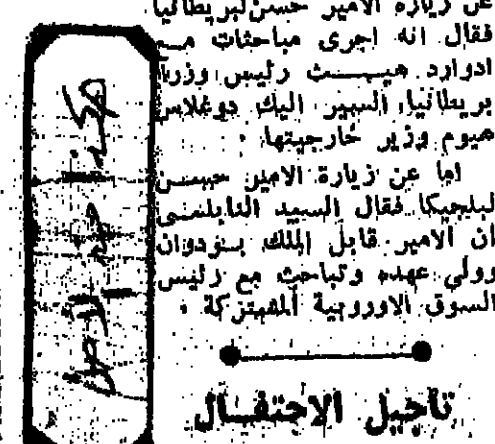 عن زيارة الامير حسن لبريطانيا
فقال انه اجرى مباحثات مع
ادوارد هيث رئيس وزراء
بريطانيا، السير اليك دوغلاس
هيوم وزير خارجيتها .
اما عن زيارة الامير حسن
لبلجيكا فقال السيد النابلسي
ان الامير قابل الملك بودوان
وولي عهده وتباحث مع رئيس
السوق الاوروبية المشتركة .
تاجيل الاحتفال